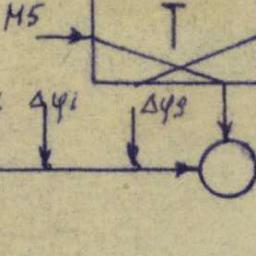 M5
T
Δφi Δφg